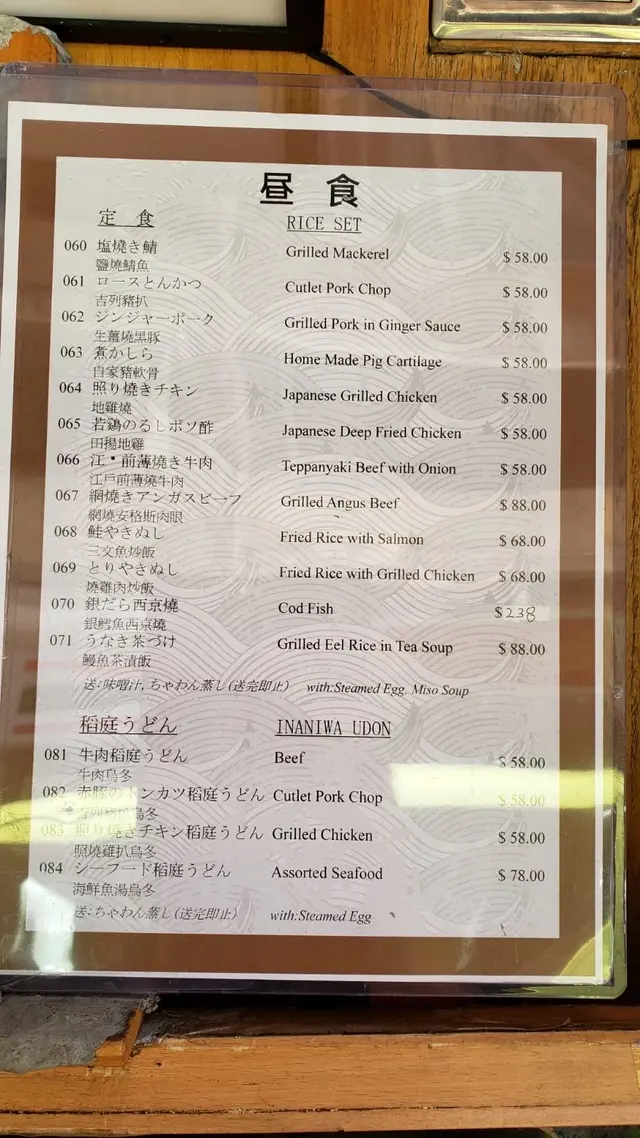 昼 食
定 食 RICE SET
060 塩燒き鯖 Grilled Mackerel $ 58.00
鹽燒鯖魚
061 ロースとんかつ Cutlet Pork Chop $ 58.00
吉列豬扒
062 ジンジャーポーク Grilled Pork in Ginger Sauce $ 58.00
生薑燒黑豚
063 煮かしら Home Made Pig Cartilage $ 58.00
自家豬軟骨
064 照り燒きチキン Japanese Grilled Chicken $ 58.00
地雞燒
065 若鶏のるしボソ酢 Japanese Deep Fried Chicken $ 58.00
田揚地雞
066 江・前薄燒き牛肉 Teppanyaki Beef with Onion $ 58.00
江戸前薄燒牛肉
067 網燒きアンガスビーフ Grilled Angus Beef $ 88.00
網燒安格斯肉眼
068 鮭やきぬし Fried Rice with Salmon $ 68.00
三文魚炒飯
069 とりやきぬし Fried Rice with Grilled Chicken $ 68.00
燒雞肉炒飯
070 銀だら西京燒 Cod Fish $ 238
銀鱈魚西京燒
071 うなき茶づけ Grilled Eel Rice in Tea Soup $ 88.00
鰻魚茶漬飯
送:味噌汁,ちゃわん蒸し(送完即止) with:Steamed Egg, Miso Soup
稻庭うどん INANIWA UDON
081 牛肉稻庭うどん Beef $ 58.00
牛肉烏冬
082 赤豚のトンカツ稻庭うどん Cutlet Pork Chop $ 58.00
吉列豬扒烏冬
083 照り燒きチキン稻庭うどん Grilled Chicken $ 58.00
照燒雞扒烏冬
084 シーフード稻庭うどん Assorted Seafood $ 78.00
海鮮魚湯烏冬
送:ちゃわん蒸し(送完即止) with:Steamed Egg